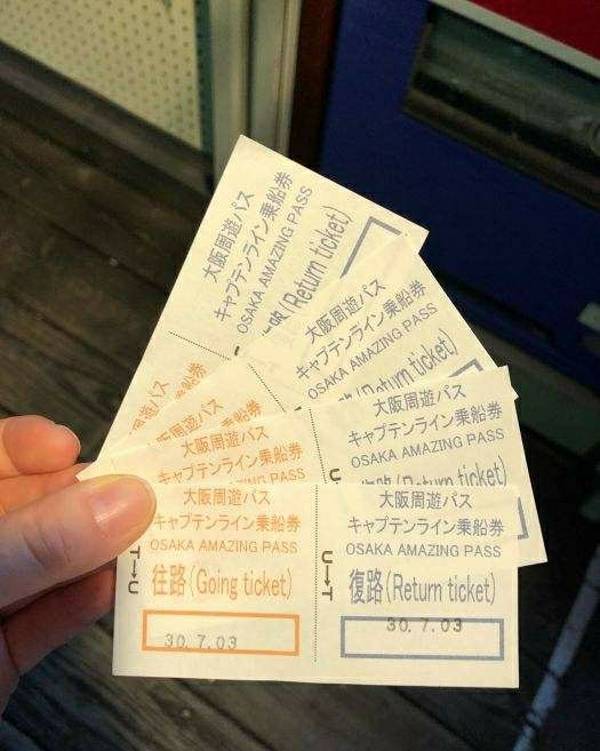 大阪周遊パス
キャプテンライン乗船券
OSAKA AMAZING PASS
(Return ticket)
大阪周遊パス
キャプテンライン乗船券
OSAKA AMAZING PASS
(Return ticket)
大阪周遊パス
キャプテンライン乗船券
OSAKA AMAZING PASS
(Return ticket)
大阪周遊パス
キャプテンライン乗船券
大阪周遊パス
キャプテンライン乗船券
OSAKA AMAZING PASS
T→U
往路(Going ticket)
30.7.03
大阪周遊パス
キャプテンライン乗船券
OSAKA AMAZING PASS
U→T
復路(Return ticket)
30.7.03